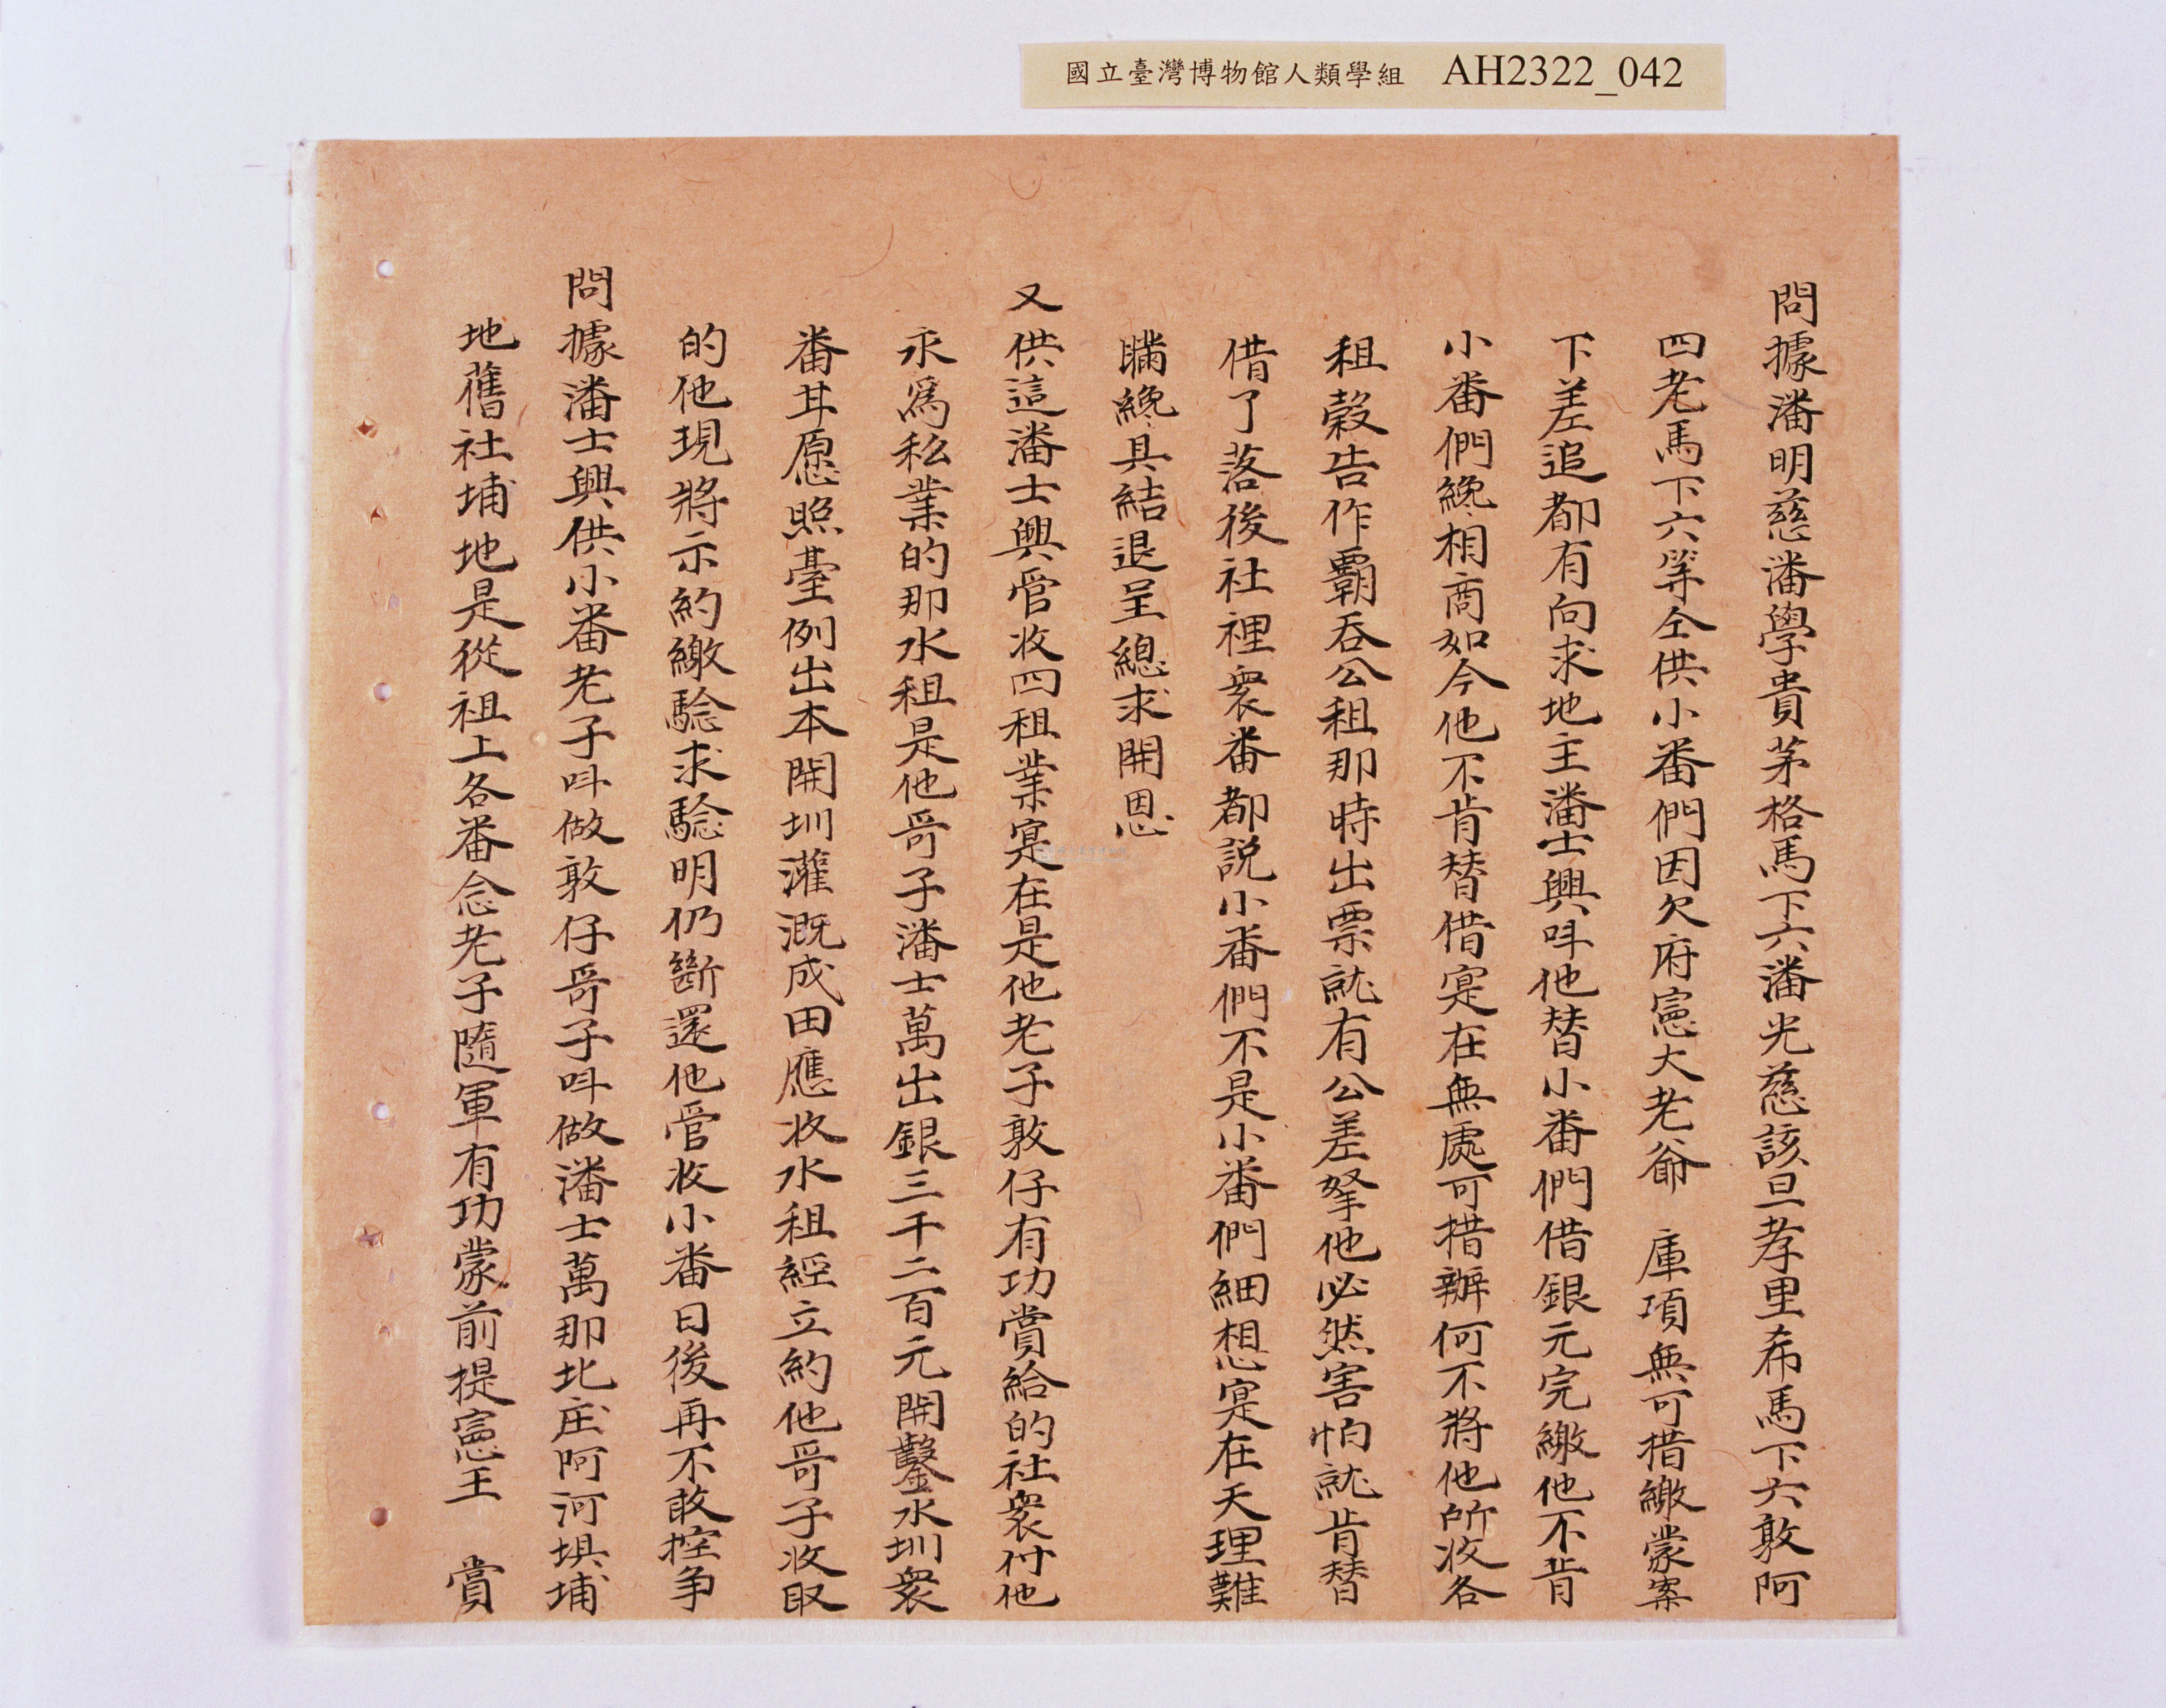 國立臺灣博物館人類學組 AH2322_042
問據潘明慈潘學貴茅格馬下六潘光慈該旦孝里希馬下六敦阿
四老馬下六等仝供小番們因欠府憲大老爺 庫項無可措繳蒙案
下差追都有向求地主潘士興呌他替小番們借銀元完繳他不肯
小番們纔相商如今他不肯替借寔在無處可措辦何不將他所收各
租穀告作霸吞公租那時出票就有公差拏他必然害怕就肯替
借了落後社裡衆番都説小番們不是小番們細想寔在天理難
瞞纔具結退呈總求開恩
又供這潘士興管收四租業寔在是他老子敦仔有功賞給的社衆付他
永爲私業的那水租是他哥子潘士萬出銀三千二百元開鑿水圳衆
番甘愿照臺例出本開圳灌溉成田應收水租經立約他哥子收取
的他現將示約繳驗求驗明仍斷還他管收小番日後再不敢控争
問據潘士興供小番老子呌做敦仔哥子呌做潘士萬那北庄阿河埧埔
地舊社埔地是從祖上各番念老子隨軍有功蒙前提憲王 賞